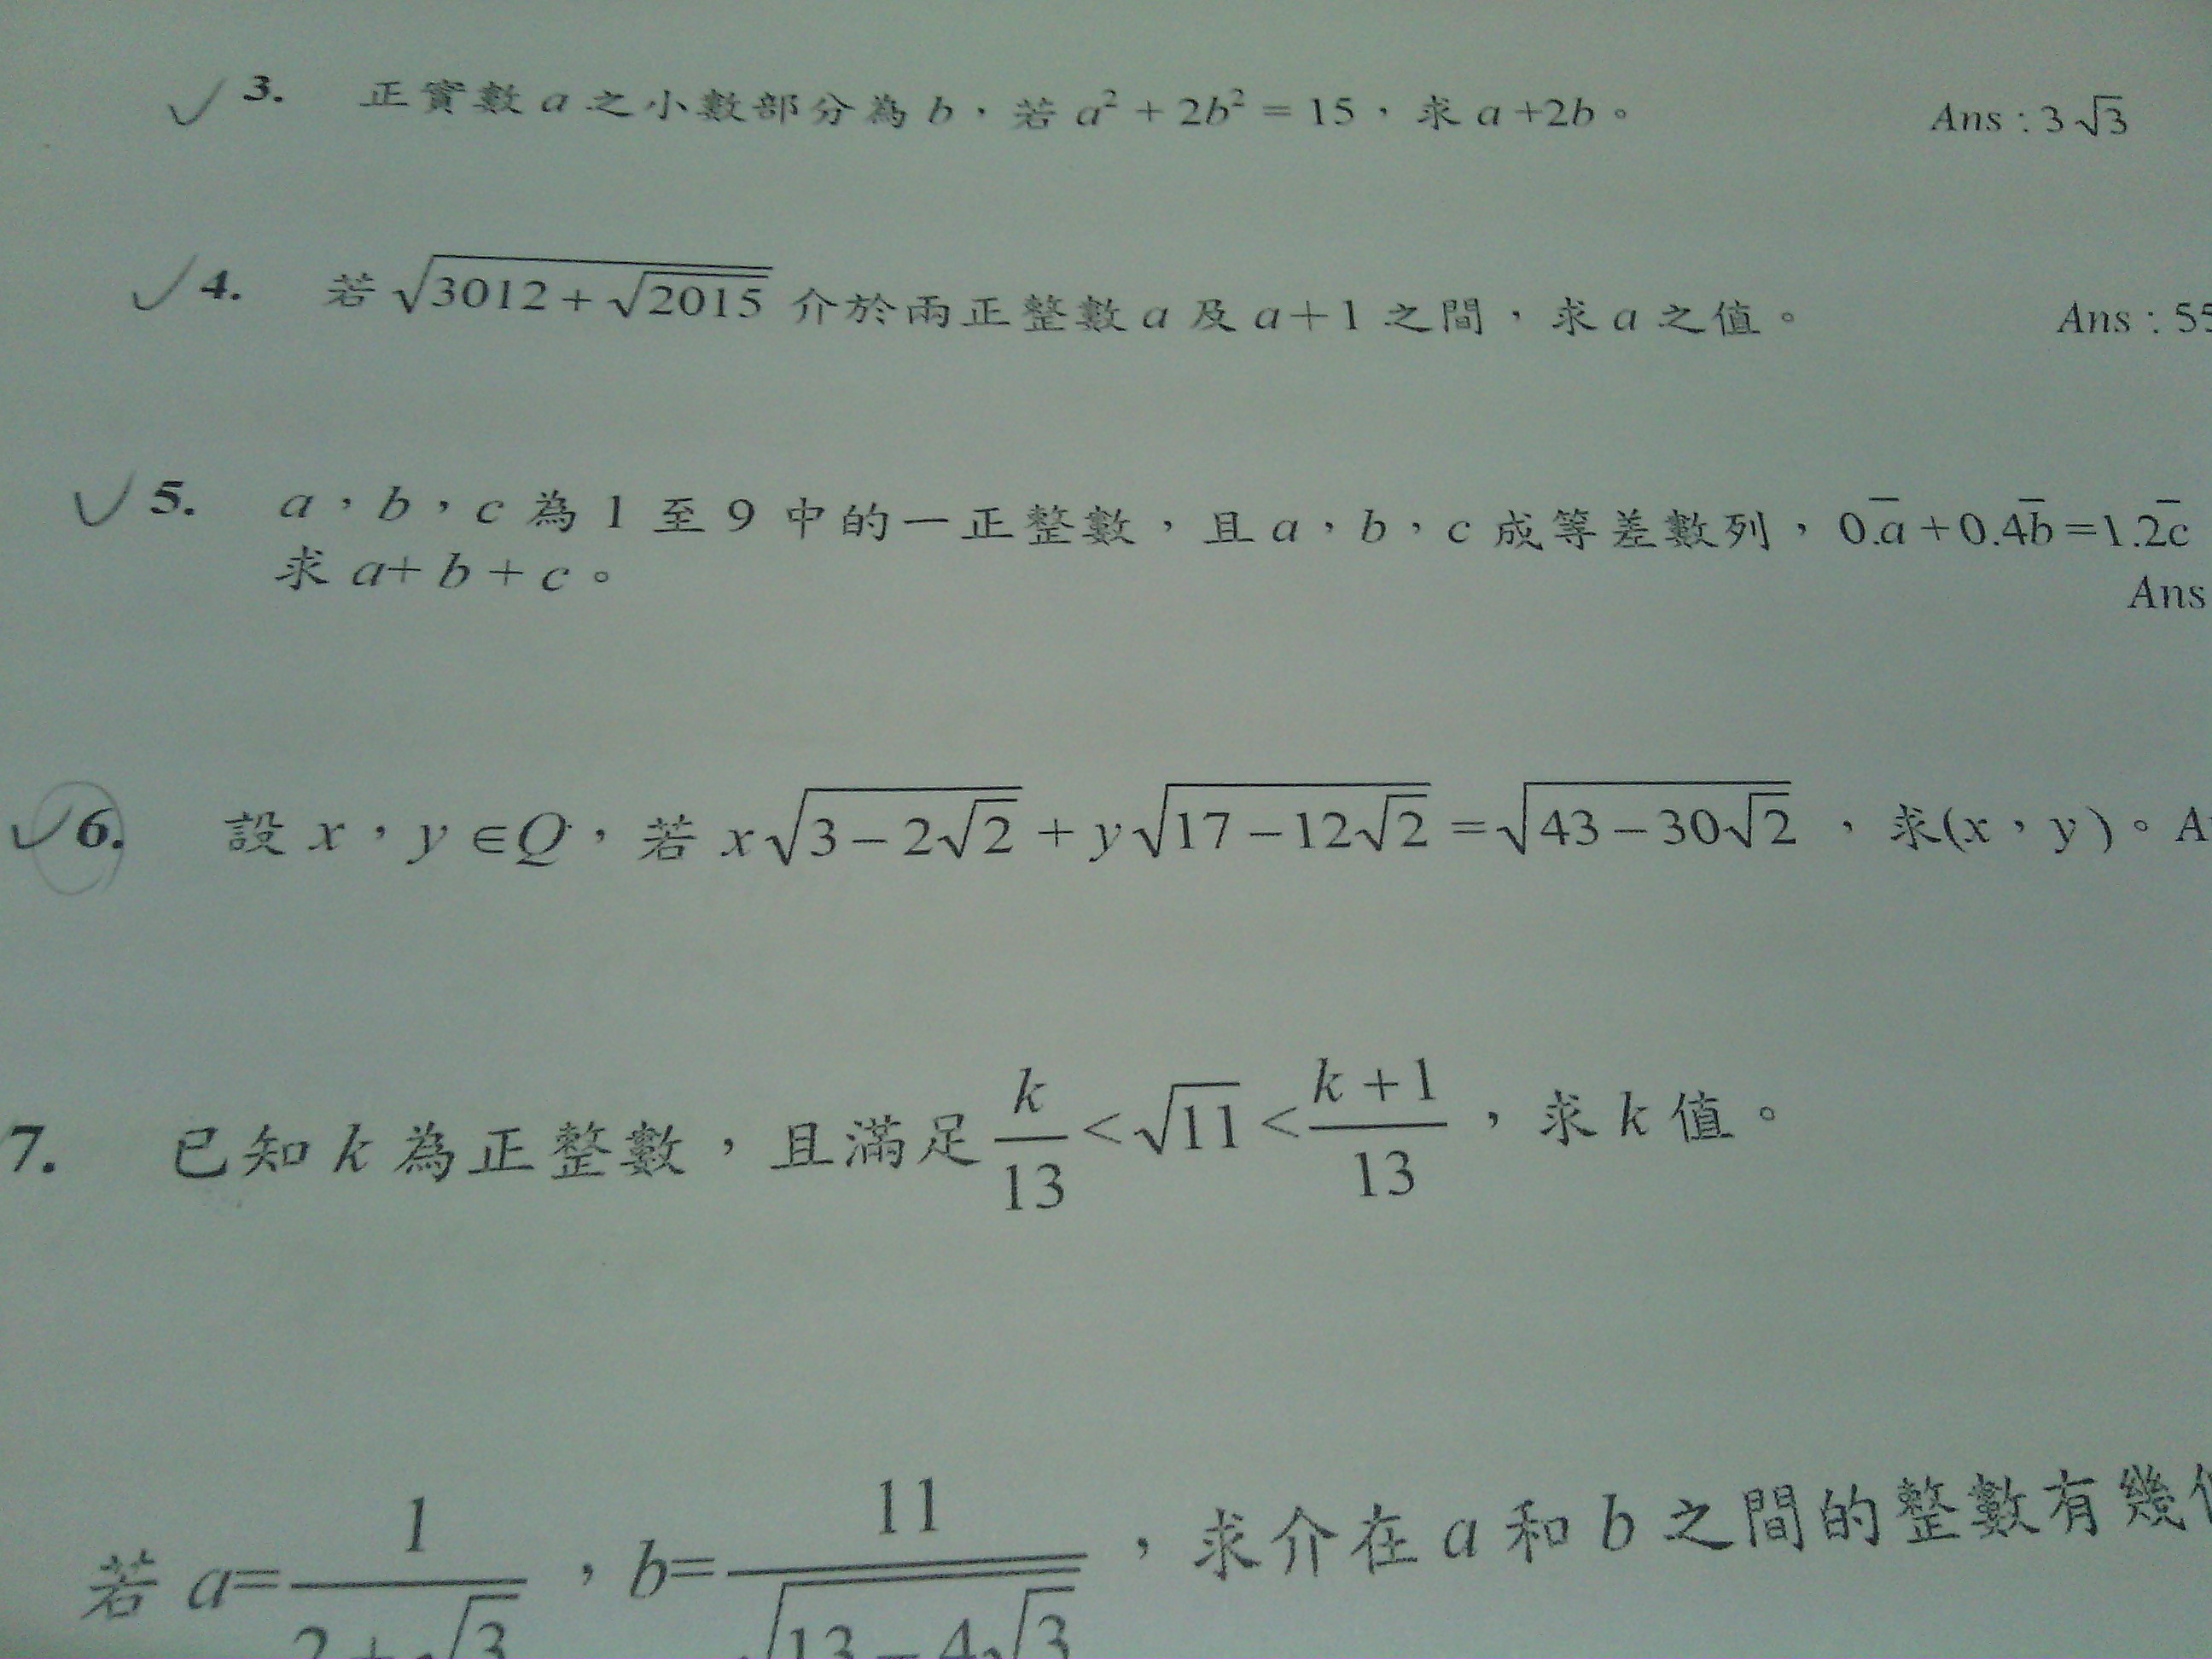 3. 正實數 a 之小數部分為 b，若 a² + 2b² = 15，求 a +2b。 Ans : 3√3
4. 若 √(3012 + √2015) 介於兩正整數 a 及 a+1 之間，求 a 之值。 Ans : 55
5. a，b，c 為 1 至 9 中的一正整數，且 a，b，c 成等差數列，0.a̅ + 0.4b̅ = 1.2c̅
求 a+ b + c。
Ans
6. 設 x，y ∈Q，若 x√(3－2√2) + y√(17－12√2) = √(43－30√2)，求(x，y)。A
7. 已知 k 為正整數，且滿足 k/13 < √11 < (k+1)/13，求 k 值。
若 a= 1/(2+√3)，b= 11/√(13－4√3)，求介在 a 和 b 之間的整數有幾